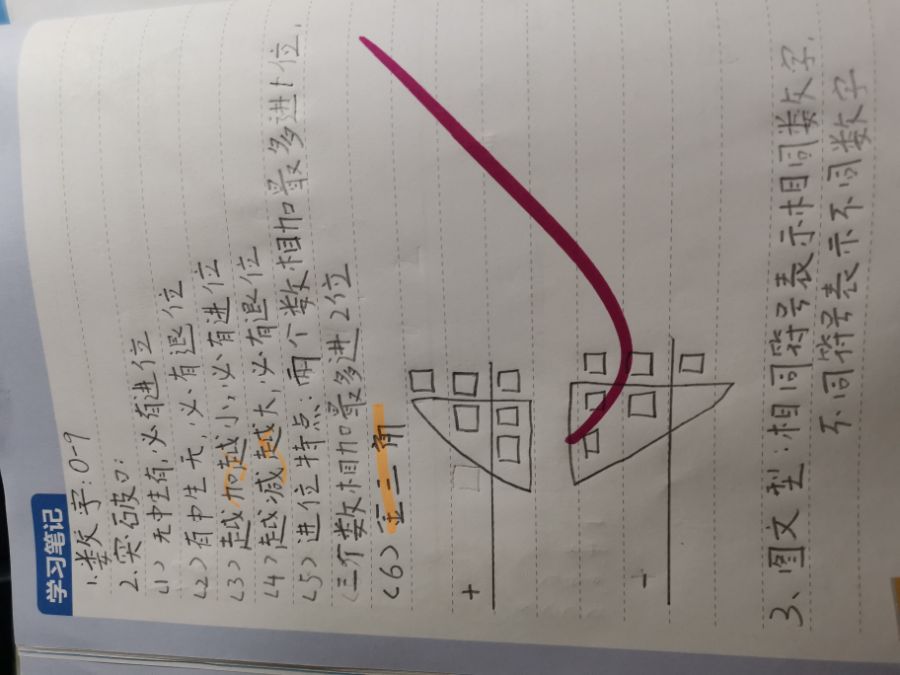 学习笔记
1.数字:0-9
2.突破口:
(1)无中生有,必有进位
(2)有中生无,必有退位
(3)越加越小,必有进位
(4)越减越大,必有退位
(5)进位特点:两个数相加最多进1位,
(三个数相加最多进2位
(6)金三角
+
-
3、图文型:相同符号表示相同数字,
不同符号表示不同数字